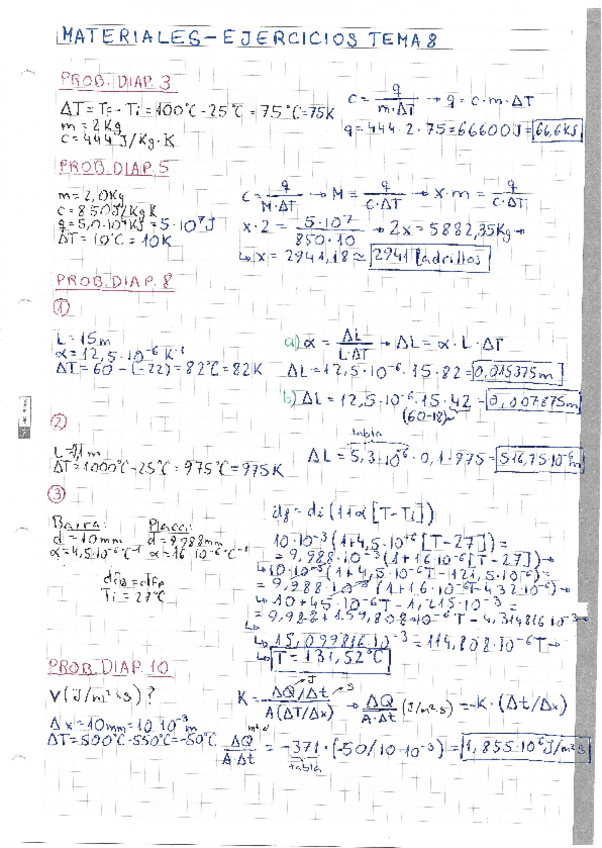 MATERIALES - EJERCICIOS TEMA 8
PROB. DIAP. 3
ΔT = Tf - Ti = 100°C - 25°C = 75°C = 75K
m = 2Kg
c = 444 J/Kg·K
c = q / m·ΔT → q = c·m·ΔT
q = 444·2·75 = 66600J = 66,6KJ
PROB. DIAP. 5
m = 2,0Kg
c = 850J/Kg K
q = 5,0·10⁴KJ = 5·10⁷J
ΔT = 10°C = 10K
c = q / M·ΔT → M = q / c·ΔT → x·m = q / c·ΔT
x·2 = 5·10⁷ / 850·10 → 2x = 5882,35Kg →
↳ x = 2941,18 ≈ 2941 ladrillos
PROB. DIAP. 8
①
L = 15m
α = 12,5·10⁻⁶ K⁻¹
ΔT = 60 - (-22) = 82°C = 82K
a) α = ΔL / L·ΔT → ΔL = α·L·ΔT
ΔL = 12,5·10⁻⁶·15·82 = 0,015375m
b) ΔL = 12,5·10⁻⁶·15·42 = 0,007875m
(60-18)
②
L = 0,1m
ΔT = 1000°C - 25°C = 975°C = 975K
tabla
ΔL = 5,3·10⁻⁶·0,1·975 = 516,75·10⁻⁶m
③
Barra:
d = 10mm
α = 4,5·10⁻⁶°C⁻¹
Placa:
d = 9,988mm
α = 16·10⁻⁶°C⁻¹
dfB = dfP
Ti = 27°C
df = di(1+α[T-Ti])
10·10⁻³(1+4,5·10⁻⁶[T-27]) =
= 9,988·10⁻³(1+16·10⁻⁶[T-27]) →
↳ 10·10⁻³(1+4,5·10⁻⁶T-121,5·10⁻⁶) =
= 9,988·10⁻³(1+16·10⁻⁶T-432·10⁻⁶) →
↳ 10+45·10⁻⁶T-1,215·10⁻³ =
= 9,988+159,808·10⁻⁶T-4,314816·10⁻³ →
↳ 15,099816·10⁻³ = 114,808·10⁻⁶T →
↳ T = 131,52°C
PROB. DIAP. 10
V(J/m²·s)?
Δx = 10mm = 10·10⁻³m
ΔT = 500°C - 550°C = -50°C
K = - ΔQ/Δt / A(ΔT/Δx) → ΔQ / A·Δt (J/m²·s) = -K·(Δt/Δx)
ΔQ / A·Δt = -371·(-50/10·10⁻³) = 1,855·10⁶J/m²s
tabla